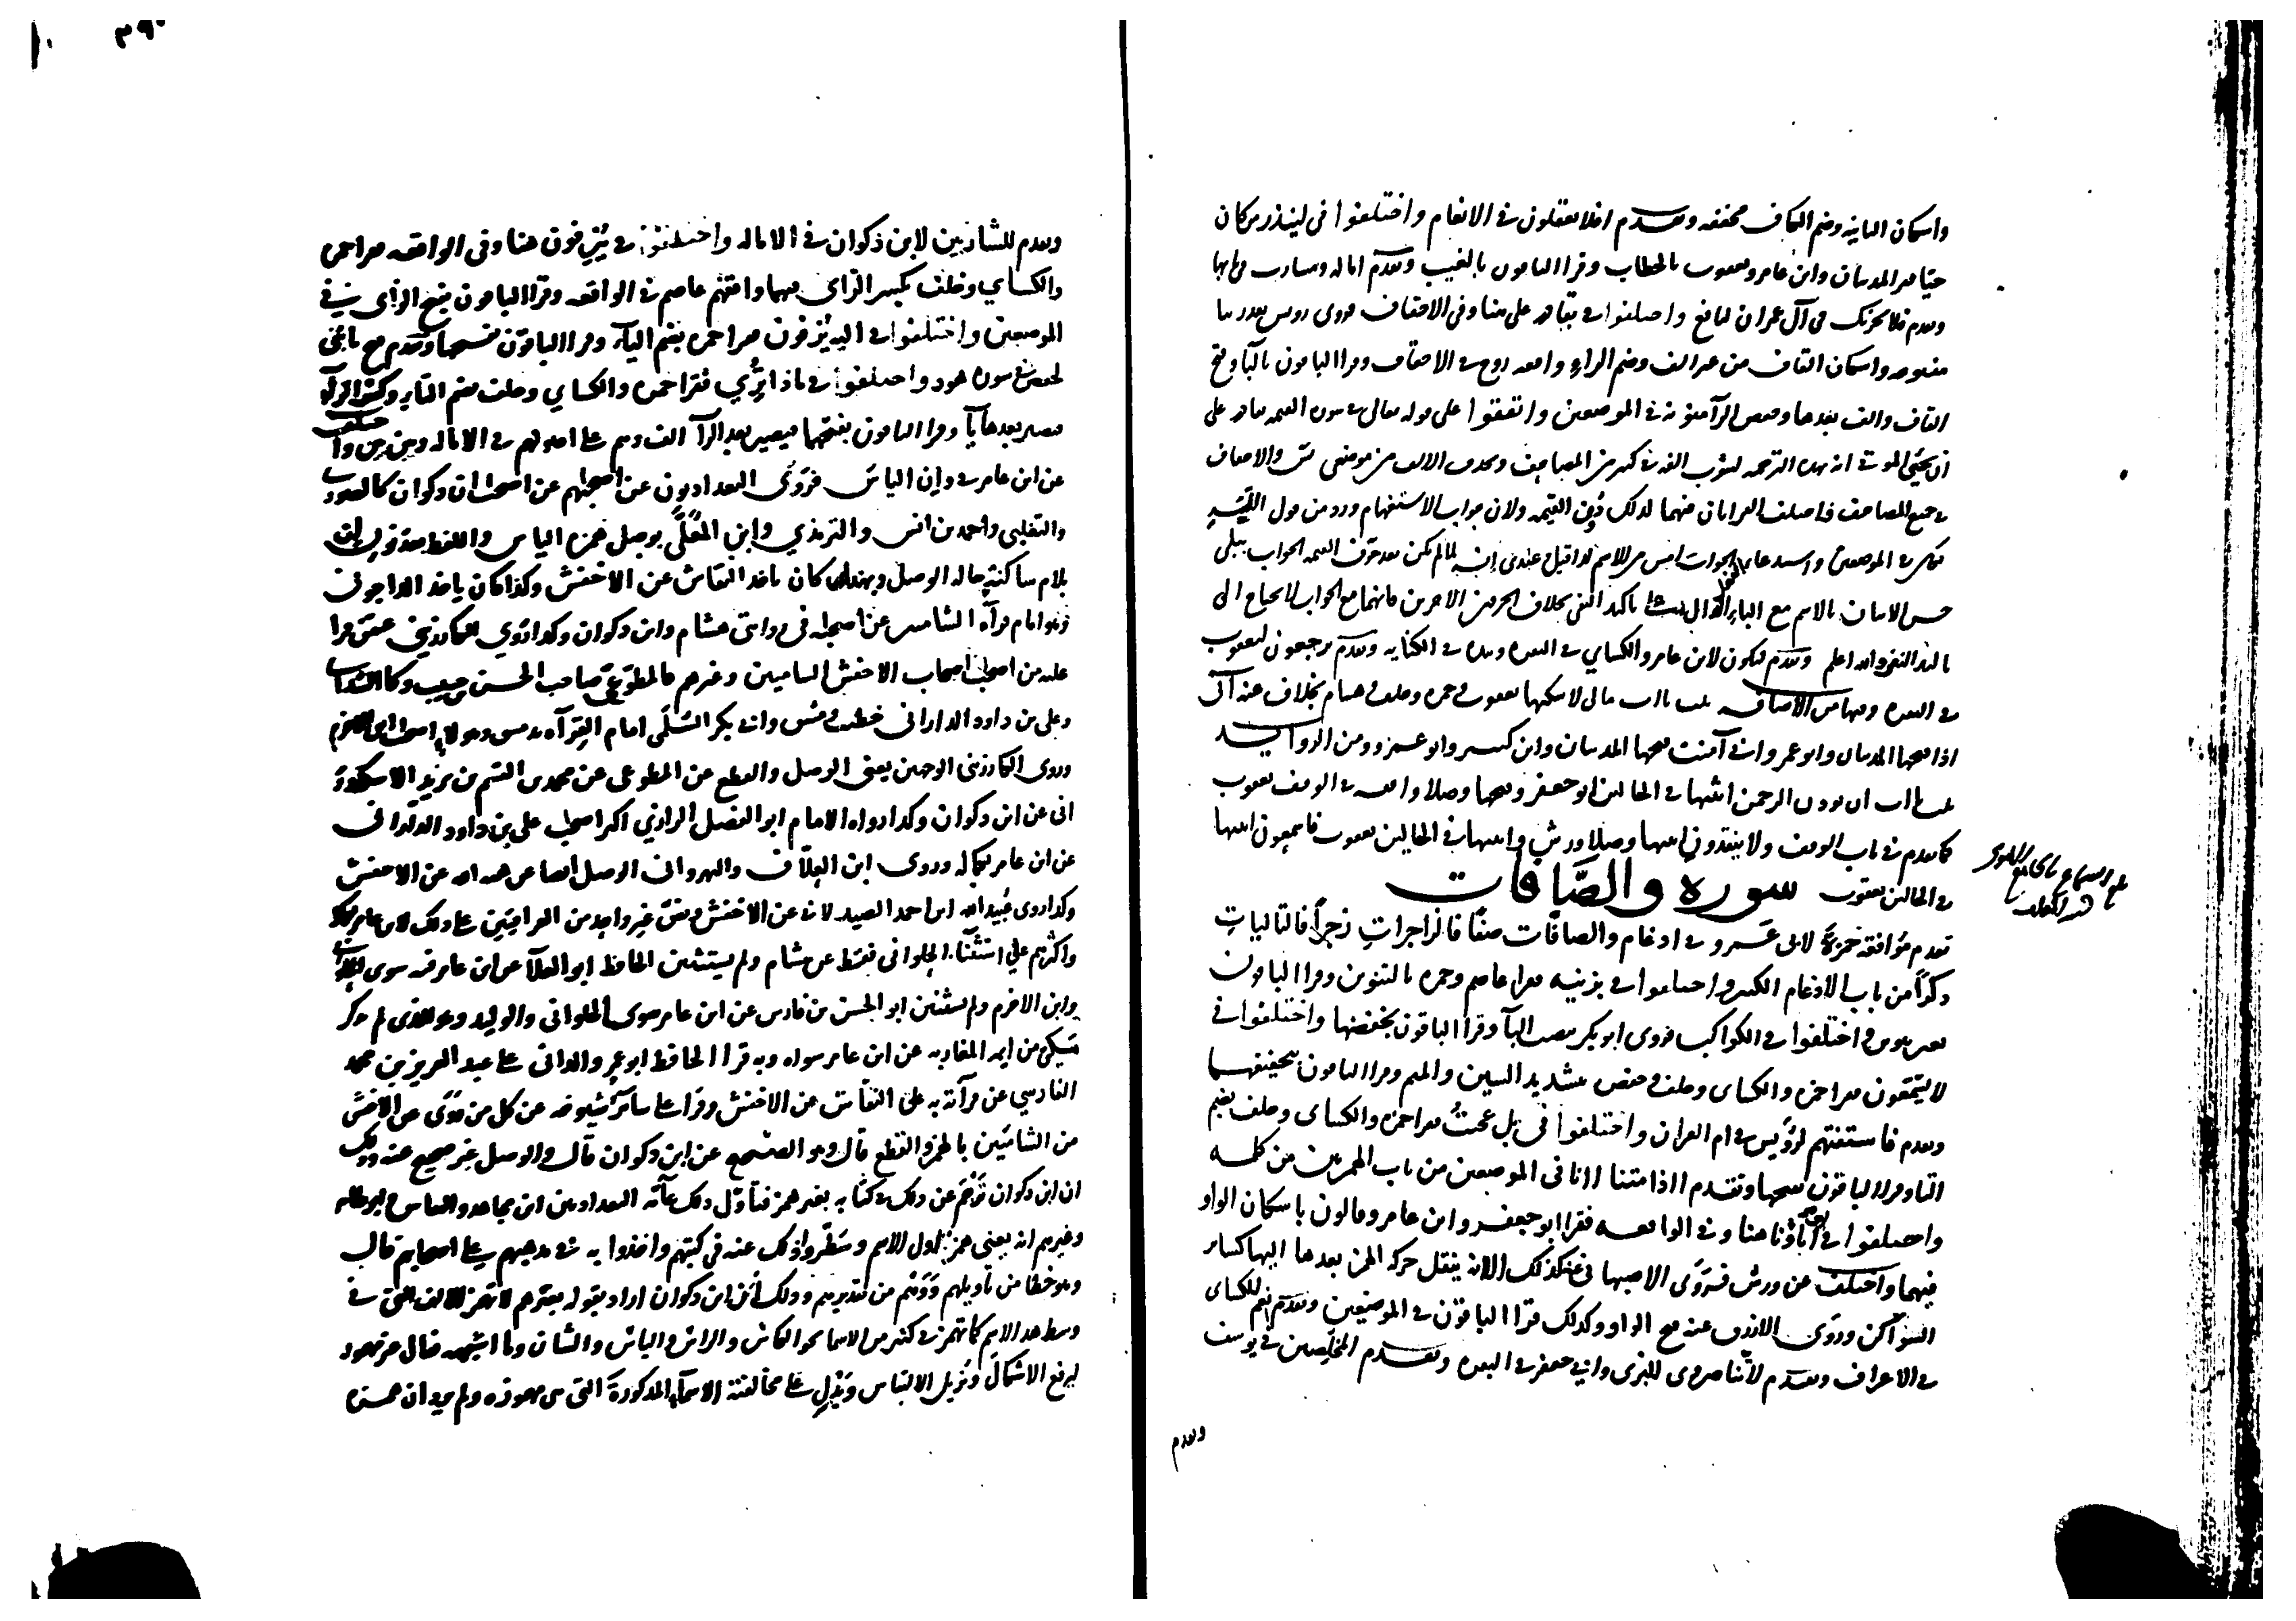 واسكان الثانية وضم الكاف مخففة وتقدم افلا يعقلون في الانعام واختلفوا في لينذر من كان
حيا فقرا المدنيان وابن عامر ويعقوب بالخطاب وقرا الباقون بالغيب وتقدم امالة ومشارب في بابها
وتقدم فلا يحزنك في آل عمران لنافع واختلفوا في بقادر على هنا وفي الاحقاف فروى رويس يقدر بيا
مفتوحة واسكان القاف من غير الف وضم الراء وافقه روح في الاحقاف وقرا الباقون بالبآ وفتح
القاف والف بعدها وخفض الرآ منونة في الموضعين واتفقوا على قوله تعالى في سورة القيمة بقادر على
ان يحيي الموتى انه بهذه الترجمة لثبوت الفه في كثير من المصاحف وبحذف الالف من موضعي يس والاحقاف
في جميع المصاحف فاختلف القرائتان فيهما لذلك دون القيمة ولان جواب الاستفهام ورد من قول الله
حسن الاتيان بالاسم مع الباء الدال على تاكيد النفي بخلاف الحرفين الاخرين فانهما مع الجواب لا يحتاج الى
تاكيد النفي والله اعلم وتقدم فيكون لابن عامر والكساي في البقرة ويده في الكناية وتقدم ترجعون ليعقوب
في البقرة وفيها من الاضافة ثلث ياات مالي لا اسكنها يعقوب وحمزة وخلف وهشام بخلاف عنه اني
اذا فتحها المدنيان وابو عمرو اني آمنت فتحها المدنيان وابن كثير وابو عمرو ومن الزوايد
ثلث ياات ان يردن الرحمن اثبتها في الحالين ابو جعفر وفتحها وصلا وافقه في الوقف يعقوب
كما تقدم في باب الوقف ولا ينقذون اثبتها وصلا ورش واثبتها في الحالين يعقوب فاسمعون اثبتها
في الحالين يعقوب سورة والصّافات
تقدم موافقة حمزة لابي عمرو في ادغام والصافات صفًّا فالزاجراتِ زجراً فالتالياتِ
ذكرًا من باب الادغام الكبير واختلفوا في بزينة فقرا عاصم وحمزة بالتنوين وقرا الباقون
بغير تنوين واختلفوا في الكواكب فروى ابو بكر بنصب البآ وقرا الباقون بخفضها واختلفوا في
لا يسَّمَّعون فقرا حمزة والكساي وخلف وحفص بتشديد السين والميم وقرا الباقون بتخفيفهما
وتقدم فاستفتهم لرويس في ام القران واختلفوا في بل عجبتُ فقرا حمزة والكساي وخلف بضم
التا وقرا الباقون بفتحها وتقدم ااذا متنا اانا في الموضعين من باب الهمزتين من كلمة
واختلفوا في اوآباؤنا هنا وفي الواقعة فقرا ابو جعفر وابن عامر وقالون باسكان الواو
فيهما واختلف عن ورش فروَى الاصبهاني عنه كذلك الا انه ينقل حركة الهمزة بعدها اليها كساير
السواكن وروَى الازرق عنه فتح الواو وكذلك قرا الباقون في الموضعين وتقدم نعم للكساي
في الاعراف وتقدم لا تّناصرون للبزي وابي جعفر في البقرة وتقدم المخلصين في يوسف
وتقدم
٣٩٠
وتقدم للشاربين لابن ذكوان في الامالة واختلفوا في يُنزِفون هنا وفي الواقعة فقرا حمزة
والكساي وخلف بكسر الزاي فيهما وافقهم عاصم في الواقعة وقرا الباقون بفتح الزاي في
الموضعين واختلفوا في اليه يزفون فقرا حمزة بضم اليآ وقرا الباقون بفتحها وتقدم فتح يا بُنَي
لحفص في سورة هود واختلفوا في ماذا تُرِي فقرا حمزة والكساي وخلف بضم التآء وكسر الرآء
فيصير بعدها يآ وقرا الباقون بفتحهما فيصير بعد الرآ الف وهم على اصولهم في الامالة وبين بين واختلف
عن ابن عامر في وان الياس فروَى البغداديون عن اصحابهم عن اصحاب ابن ذكوان كالصوري
والتغلبي واحمد بن انس والترمذي وابن المعلَّى بوصل همزة الياس واللفظ بعد نون ان
بلام ساكنة حالة الوصل وبهذا كان ياخذ النقاش عن الاخفش وكذا كان ياخذ الداجوني
وهو امام قرآة الشاميين عن اصحابه في روايتي هشام وابن ذكوان
عليه من اصحاب اصحاب الاخفش الشاميين وغيرهم كالمطوعي صاحب الحسن بن حبيب
وعلي بن داود الداراني خطيب دمشق وابي بكر السُّلمي امام القرآة بدمشق
وروى الكارزيني الوجهين يعني الوصل والقطع عن المطوعي عن محمد بن القسم بن يزيد الاسكندر
اني عن ابن ذكوان وكذا رواه الامام ابو الفضل الرازي اكبر اصحاب علي بن داود الداراني
عن ابن عامر بكماله وروى ابن العلّاف والنهرواني الوصل ايضا عن هبة الله عن الاخفش
وكذا روى عُبيد الله ابن احمد الصيدلاني عن الاخفش ونصّ غير واحد من العراقيين على ذلك لابن عامر بكماله
واكثرهم على استثنآ الحلواني فقط عن هشام ولم يستثنِ الحافظ ابو العلآ عن ابن عامر فيه سوى
وابن الاخرم ولم يستثنِ ابو الحسن بن فارس عن ابن عامر سوى الحلواني والوليد وهو الذي لم يذكر
مكي من ايمة المغاربة عن ابن عامر سواه وبه قرا الحافظ ابو عمرو الداني على عبد العزيز بن محمد
الفارسي عن قرآته به على النقاش عن الاخفش وقرا على ساير شيوخه عن كل من روَى عن الاخفش
من الشاميين بالهمز والقطع قال وهو الصحيح عن ابن ذكوان قال والوصل غير صحيح عنه وذلك
ان ابن ذكوان تَرجَم عن ذلك في كتابه بغير همز فتأول ذلك عآمّة البغداديين ابن مجاهد والنقاش وابو طاهر
وغيرهم انه يعني همزة اول الاسم وسَطّروا ذلك عنه في كتبهم واخذوا به في مذهبهم على اصحابهم قال
وهو خطأ من تأويلهم ووَهْم من تقديرهم وذلك أن ابن ذكوان اراد بقوله بغير همز لا تهمز الالف التي في
وسط هذا الاسم كما تهمز في كثير من الاسما نحو الكاس والراس والباس والشان وما اشبهه فقال غير مهموز
ليرفع الاشكال ويُزيل الالباس ويَدُل على مخالفتة الاسمآء المذكورة التي هي مهموزة ولم يرد ان همزة